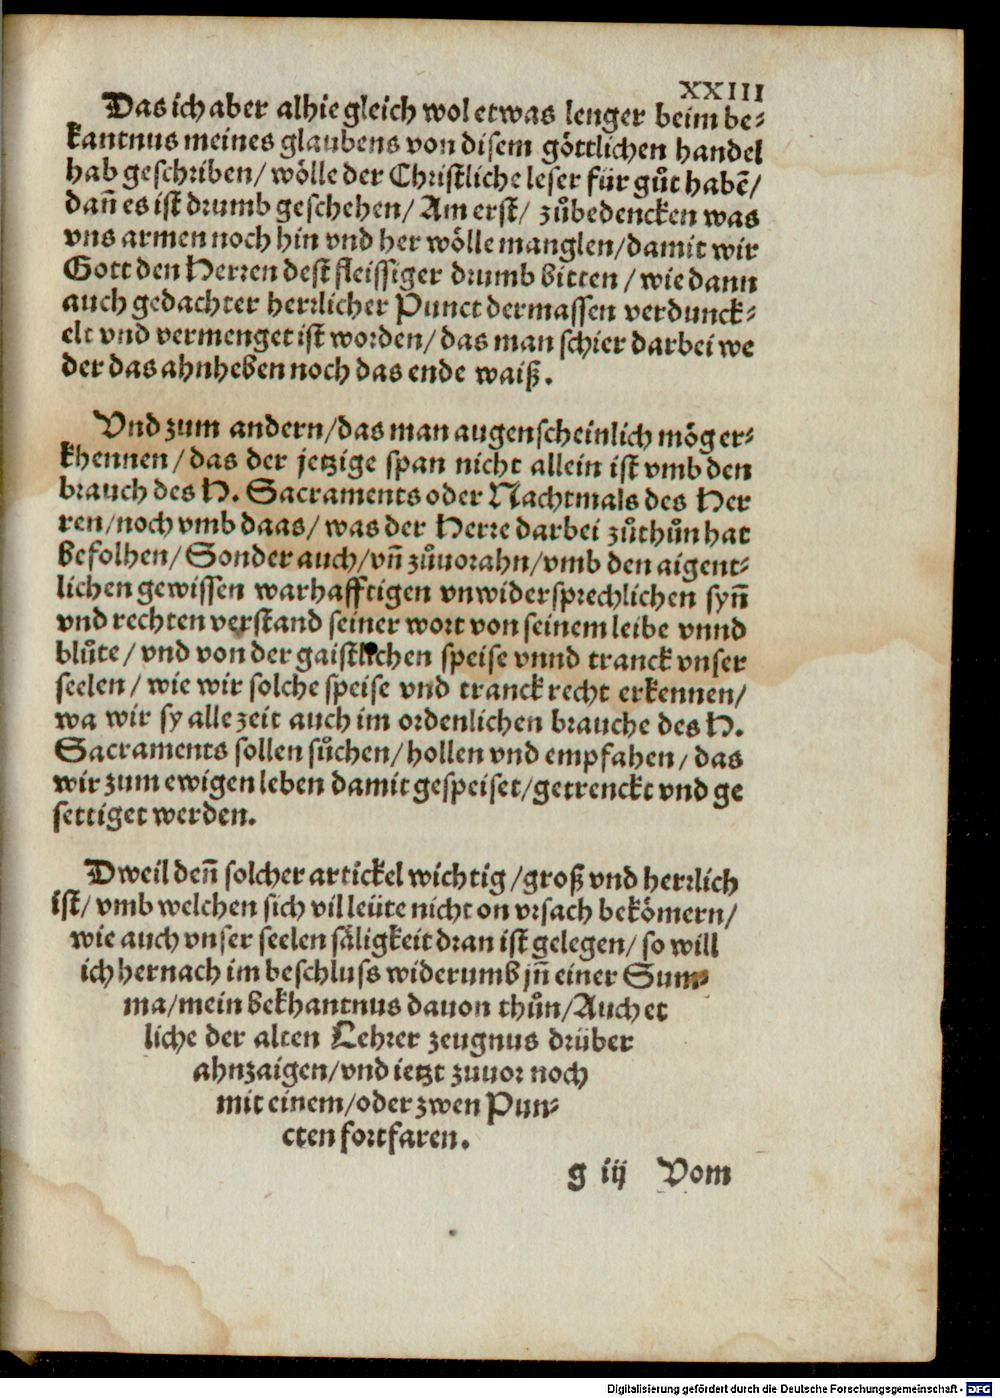 XXIII
Das ich aber alhie gleich wol etwas lenger beim be⸗
kantnus meines glaubens von disem göttlichen handel
hab geschriben/ wölle der Christliche leser für gůt habẽ/
dañ es ist drumb geschehen/ Am erst/ zůbedencken was
vns armen noch hin vnd her wölle manglen/damit wir
Gott den Herren dest fleissiger drumb bitten/ wie dann
auch gedachter herrlicher Punct dermassen verdunck⸗
elt vnd vermenget ist worden/ das man schier darbei we
der das ahnheben noch das ende waiß.
Vnd zum andern/das man augenscheinlich mög er⸗
khennen/ das der jetzige span nicht allein ist vmb den
brauch des H. Sacraments oder Nachtmals des Her
ren/noch vmb daas/ was der Herre darbei zůthůn hat
befolhen/ Sonder auch/ vñ zůuorahn/vmb den aigent⸗
lichen gewissen warhafftigen vnwidersprechlichen syñ
vnd rechten verstand seiner wort von seinem leibe vnnd
blůte/ vnd von der gaistlichen speise vnnd tranck vnser
seelen/ wie wir solche speise vnd tranck recht erkennen/
wa wir sy alle zeit auch im ordenlichen brauche des H.
Sacraments sollen sůchen/ hollen vnd empfahen/ das
wir zum ewigen leben damit gespeiset/getrenckt vnd ge
settiget werden.
Dweil deñ solcher artickel wichtig/groß vnd herrlich
ist/ vmb welchen sich vil leüte nicht on vrsach bekömern/
wie auch vnser seelen säligkeit dran ist gelegen/ so will
ich hernach im beschluss widerumb jñ einer Sum⸗
ma/mein bekhantnus dauon thůn/Auch et
liche der alten Lehrer zeugnus drüber
ahnzaigen/vnd ietzt zuuor noch
mit einem/oder zwen Pun⸗
cten fortfaren.
g iij Vom
Digitalisierung gefördert durch die Deutsche Forschungsgemeinschaft - DFG